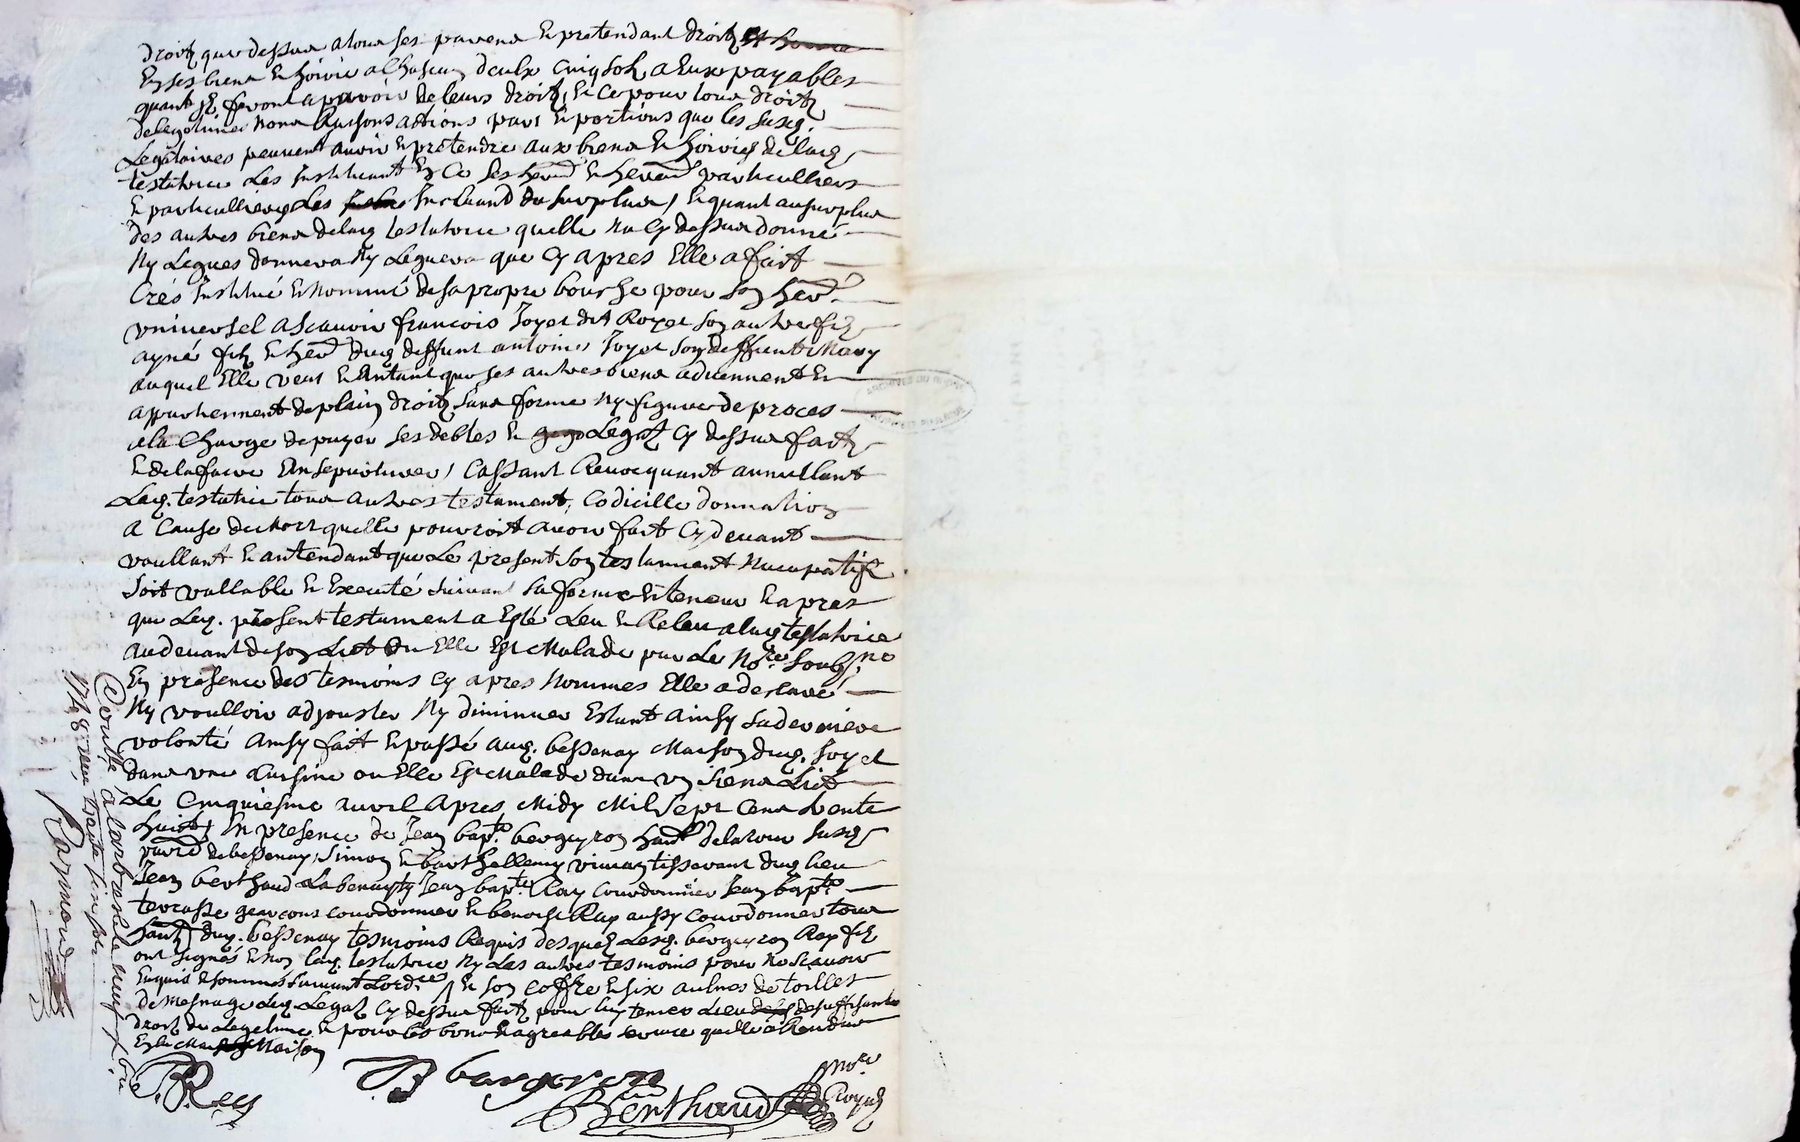 droitz que dessus a tous ses parens et pretendant droitz et hoirie
en ses biens et hoirie a chascun deulx cinq solz a eux payables
quant ilz feront aparoir de leurs droitz, et ce pour tous droitz
de legitime noms raisons actions part et portions que les susd.
legataires peuvent avoir et pretendre aux biens et hoiries de lad.
testatrice les instituant en ce ses herers et heres particulliers
et particullieres les incluant du surplus, et quant au surplus
des autres biens de lad. testatrice quelle na cy dessus donné
ny legues donnera ny leguera que cy apres elle a fait
créé institué et nommé de sa propre bouche pour son her.
universel ascavoir francois Joyet dit Royet son autre filz
ayné filz et her. dud. deffunt antoine Joyet son deffunt mary
auquel elle veut et antant que ses autres biens adviennent et
appartiennent de plain droitz sans forme ny figure de proces
a la charge de payer ses debtes et legatz cy dessus faitz
et de la faire ensepvelir, cassant revocquant annullant
lad. testatrice tous autres testament, codicille donnation
a cause de mort quelle pourroit avoir fait cy devant
voullant et antendant que le present son testament nuncupatif
soit vallable et executé suivant sa forme et teneur et apres
que led. present testament a esté leu et releu a lad. testatrice
au devant de son lict ou elle est malade par le nore soubsne
en presence des tesmoins cy apres nommes elle a desclaré
ny voulloir adjouster ny diminuer estant ainsy sa derniere
volonté ainsy fait et passé aud. bessenay maison dud. Joyet
dans une cuisine ou elle est malade dans un siens lict
le cinquiesme avril apres midy mil sept cens trente
huict, en presence de Jean bapte bergeyron hant de la tour susd.
parre de bessenay, simon et barthellemy tisserant dud. lieu
Jean berthaud Jean bapte Ray courdonnier Jean bapte
terrasse garcons courdonnier et benoist Ray aussy courdonnier tous
hantz dud. bessenay tesmoins requis desquelz lesd. bergeyron Ray filz
ont signés et non lad. testatrice ny les autres tesmoins pour ne scavoir
enquis et sommés suivant lordre et son coffre et six aulnes de toilles
de mesnage led. legatz cy dessus faitz pour luy tenir lieu de suffisante
droitz de legitime et pour les bons et agreables service quelle a rendue
en sa maison
J B Rey
J B bargeron
Berthaud
nore
Royal
Controllé a larbresle le neuf avril
1738 receu trente six sols
Raymond